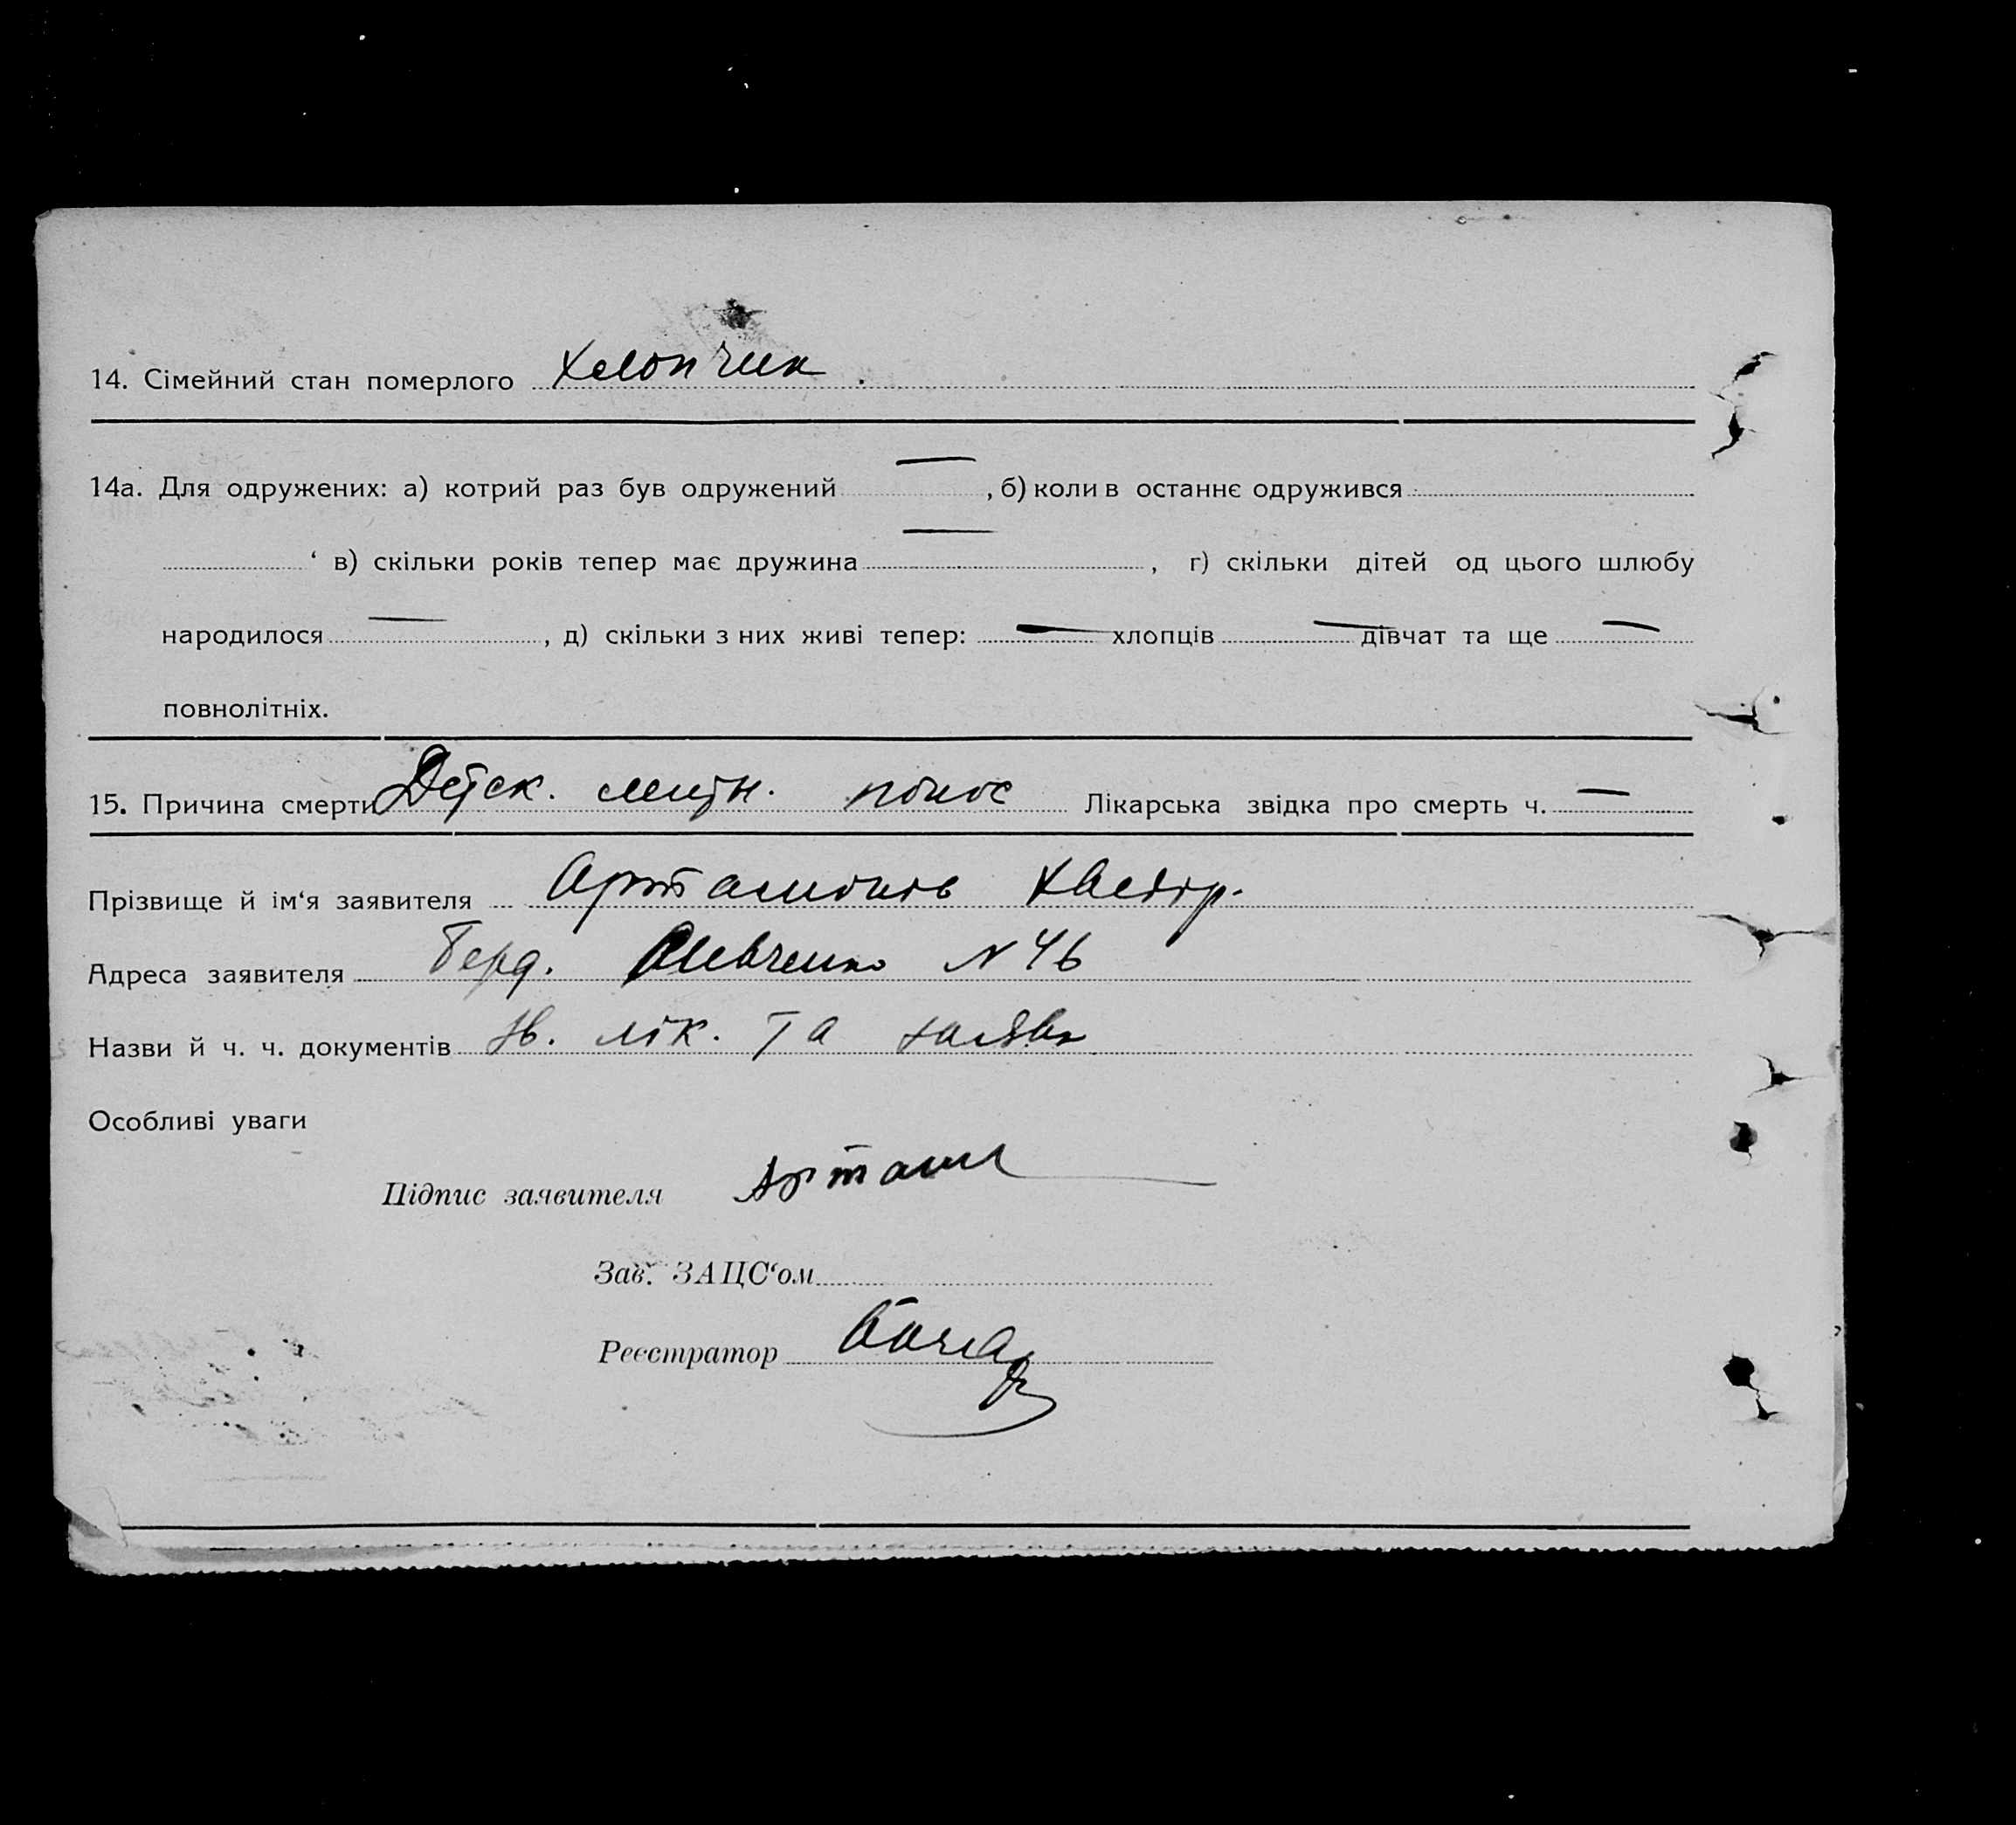 14. Сімейний стан померлого Хлопчик
14а. Для одружених: а) котрий раз був одружений —, б) коли в останнє одружився
‘ в) скільки років тепер має дружина —, г) скільки дітей од цього шлюбу
народилося —, д) скільки з них живі тепер: — хлопців — дівчат та ще —
повнолітніх.
15. Причина смерти Детск. летн. понос Лікарська звідка про смерть ч. —
Прізвище й ім‘я заявителя Артамонов
Адреса заявителя Берд. Шевченко N 46
Назви й ч. ч. документів зв. лік. та заява
Особливі уваги
Підпис заявителя Артам
Зав. ЗАЦС‘ом
Реєстратор